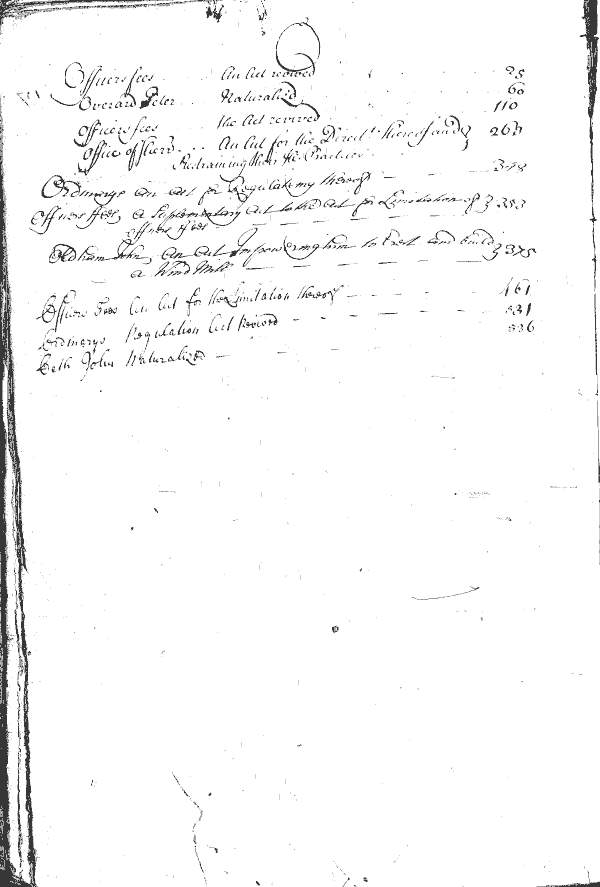 O
Officers fees ... An Act revived 25
Overard Peter ... Naturalized 60
Officers fees ... the Act revived 110
Office of Sheriff ... An Act for the Direct.n thereof and
Restraining their Ill Practices 268
Ordinarys an Act for Regulateing thereof — 348
Officers ffees, a Suplementary act to the act for Limitation of
officers ffees 353
Oldham John, an act Impowering him to Erect and build
a Wind Mill — — — — — 375
Officers Fees An Act for the Limitation thereof — — — 461
Ordinarys Regulation Act Revived — — — — 531
Oeth John Naturalized — — — — 536